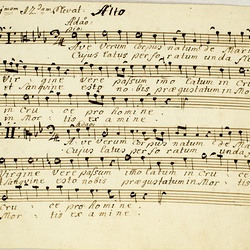 Elevat: Alto
Adão
Pio:
I Ave Verum corpus natum de Mari
Cujus latus perforatum unda fl
Virgine Vere passum imo latum in Cru
et sanguine esto nobis prægustatum in Mor
in Cru ce pro homine
in Mor tis examine
II Ave Verum corpus natum de Mar
Cujus latus perforatum unda
Virgine Vere passum imo latum in Cru ce
Sanguine esto nobis prægustatum in Mor tis
in Cru ce pro homine
in Mor tis ex a mine